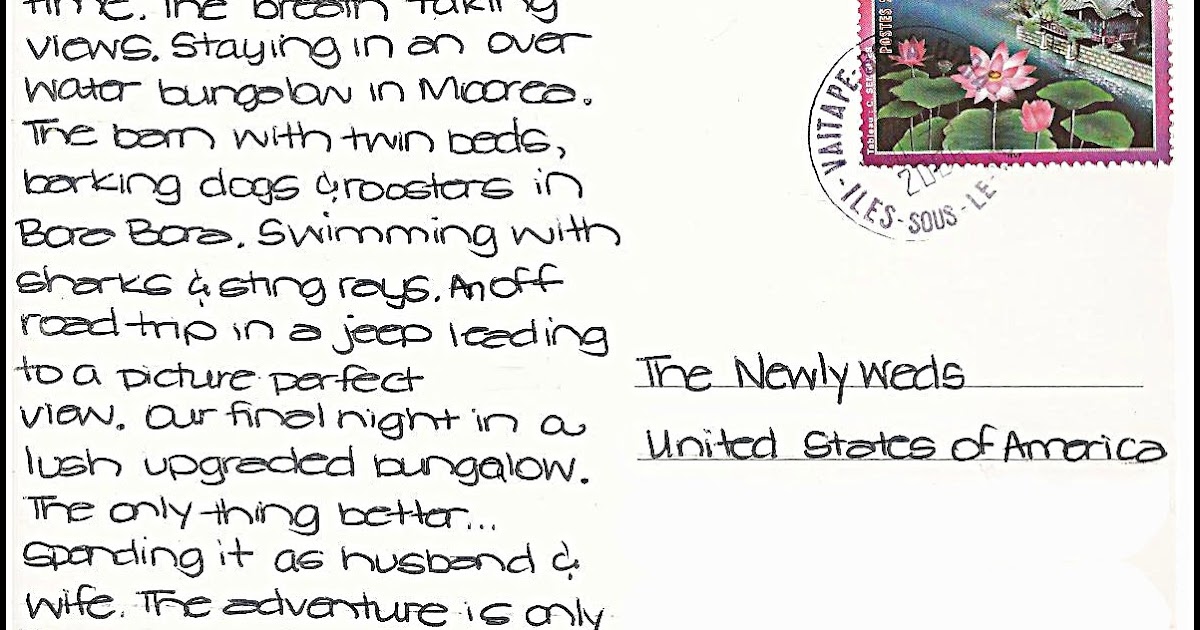 time. The breath taking
views. Staying in an over
water bungalow in Moorea.
The barn with twin beds,
barking dogs & roosters in
Bora Bora. Swimming with
sharks & sting rays. An off
road trip in a jeep leading
to a picture perfect
view. Our final night in a
lush upgraded bungalow.
The only thing better...
spending it as husband &
wife. The adventure is only
POSTES
Tableau: C.
VAITAPE
- ILES - SOUS - LE -
The Newly Weds
United States of America